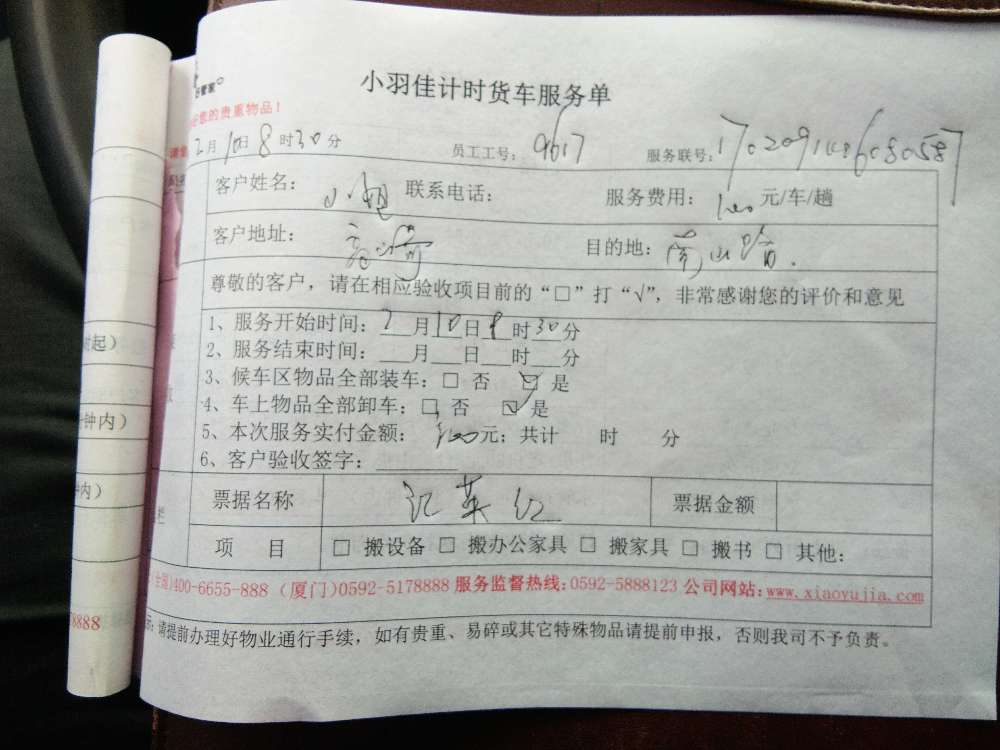 小羽佳计时货车服务单
好管家
您的贵重物品！
2月10日8时30分 员工工号：9617 服务联号：
客户姓名： 联系电话： 服务费用：100元/车/趟
客户地址： 目的地：南山路.
尊敬的客户，请在相应验收项目前的“□”打“√”，非常感谢您的评价和意见
1、服务开始时间：2月10日8时30分
2、服务结束时间：___月___日___时___分
3、候车区物品全部装车：□ 否 ☑ 是
4、车上物品全部卸车：□ 否 ☑ 是
5、本次服务实付金额： 元；共计 时 分
6、客户验收签字：________
票据名称 票据金额
项 目 □ 搬设备 □ 搬办公家具 □ 搬家具 □ 搬书 □ 其他：
全国)400-6655-888 (厦门)0592-5178888 服务监督热线：0592-5888123 公司网站：www.xiaoyujia.com
请提前办理好物业通行手续，如有贵重、易碎或其它特殊物品请提前申报，否则我司不予负责。
时起）
钟内）
内）
8888